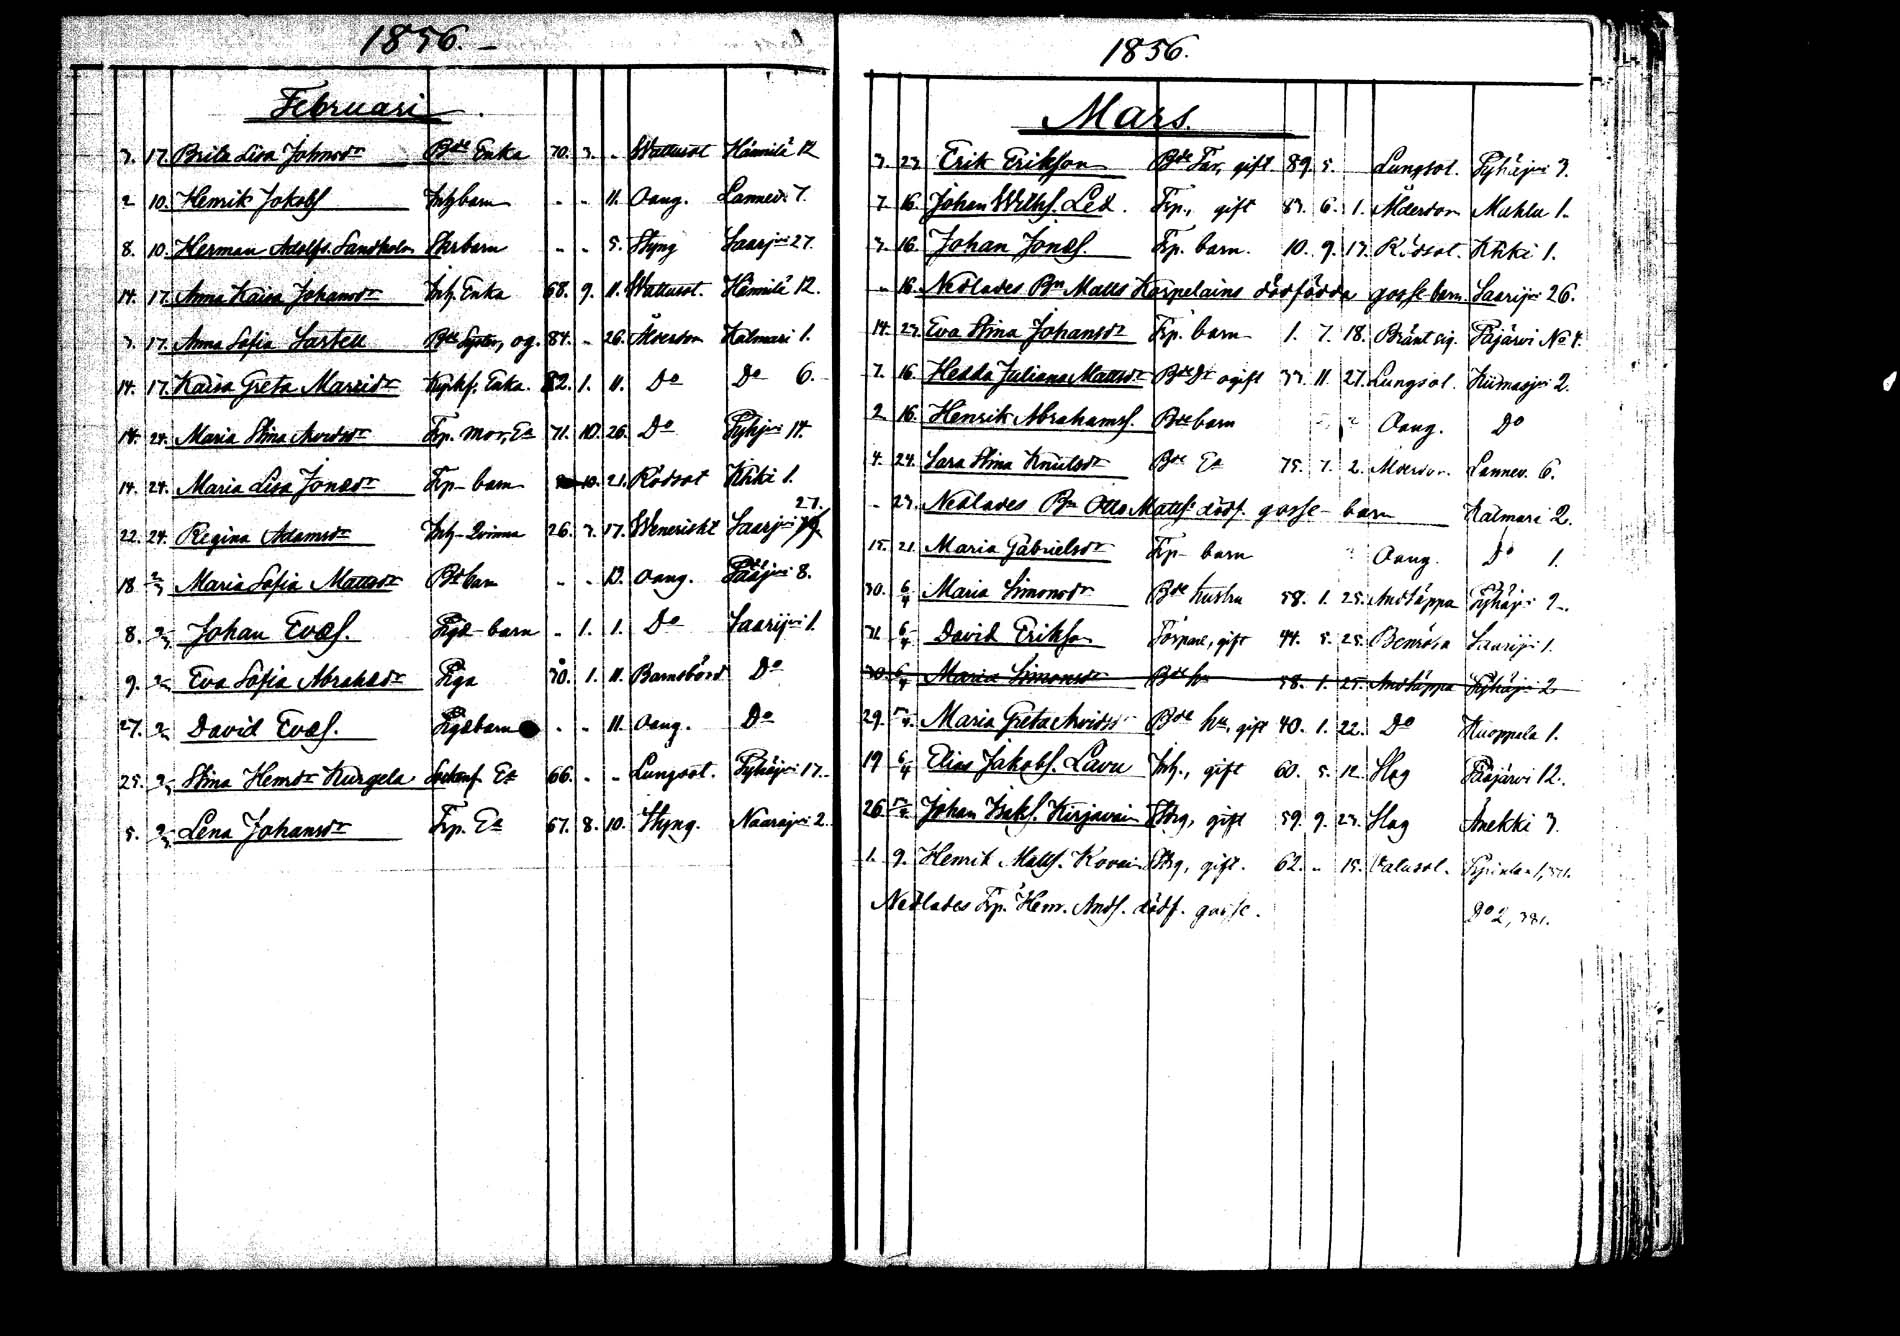 1856.
Februari
3. 17. Brita Lisa Johnsdr Bde Enka 70. 3. - Wattusot Hännilä 12
2 10. Henrik Jakobs. Inhbarn - - 11. Oang. Lannevi 7.
8. 10. Herman Adolfs. Sandholm Skrbarn - - 5. Styng Saarjvi 27.
14. 17. Anna Kaisa Johansdr Inh. Enka 68. 9. 11. Wattusot. Hännilä 12.
3. 17. Anna Sofia Sarlell Bde Syster, og. 84. - 26. Ålderdom Kalmari 1.
14. 17. Kaisa Greta Marcidr Enka. 82. 1. 11. Do Do 6.
14. 24. Maria Stina Arvidsdr Trp. mor, Ea 71. 10. 26. Do Pyhjvi 14.
14. 24. Maria Lisa Jonasdr Trp- barn 10. 21. Rödsot Khki 1.
22. 24. Regina Adamsdr Inh- Qvinna 26. 3. 17. Weneriskt Saarjvi 27.
18 2/3 Maria Sofia Mattsdr Bdebarn - - 13. Oang. Pääjvi 8.
8. 2/3 Johan Evas. Piga- barn - 1. 1. Do Saarijvi 1.
9. 2/3 Eva Sofia Abrahdr Piga 30. 1. 11. Barnsbörd Do
27. 2/3 David Evas. Pigabarn - - 11. Oang. Do
25. 2/3 Stina Henrdr Kurgela Ea 66. - - Lungsot. Pyhäjvi 17.
5. 2/3 Lena Johansdr Trp. Ea 67. 8. 10. Styng. Naarajvi 2.
1856.
Mars.
3. 23. Erik Eriksson Bde Far, gift 89. 5. Lungsot. Pyhäjvi 3.
7. 16. Johan Wilhs. Led. Trp., gift 83. 6. 1. Ålderdom Mahlu 1.
3. 16. Johan Jonas. Trp. barn. 10. 9. 13. Rödsot. Khki 1.
- 16. Nedlades Bn Matts Karpelains dödfödda gosse barn. Saarijvi 26.
14. 23. Eva Stina Johansdr Trp. barn 1. 7. 18. Bränt sig. Pääjärvi No 4.
7. 16. Hedda Juliana Mattsdr Bde Dr ogift 33. 11. 27. Lungsot. Kiimasjvi 2.
2. 16. Henrik Abrahams. Bdebarn Oang. Do
4. 24. Sara Stina Knutsdr Bde Ea 75. 7. 2. Ålderdom. Lannev. 6.
- 23. Nedlades Bn Otto Matts. dödf. gosse- barn Kalmari 2.
15. 21. Maria Gabrielsdr Trp- barn Oang. Do 1.
30. 6/4 Maria Simonsdr Bde hustru 58. 1. 25. Andtäppa Pyhäjvi 2.
31 6/4 David Eriksson Torpare, gift 44. 5. 25. Benröta Saarijvi 1.
30. 6/4 Maria Simonsdr Bde hu 58. 1. 25. Andtäppa Pyhäjvi 2
29. Maria Greta Arvidsdr Bde hu, gift 40. 1. 22. Do Kuoppala 1.
19 6/4 Elias Jakobs. Lavu Inh., gift 60. 5. 12. Slag Pääjärvi 12.
26. Johan Isaks. Kirjavain gift 59. 9. 23. Slag Änekki 3.
1. 9. Henrik Matts. gift. 62. - 15.
Nedlades Trp. Henr. Ands. dödf. gosse. Do 2, 381.